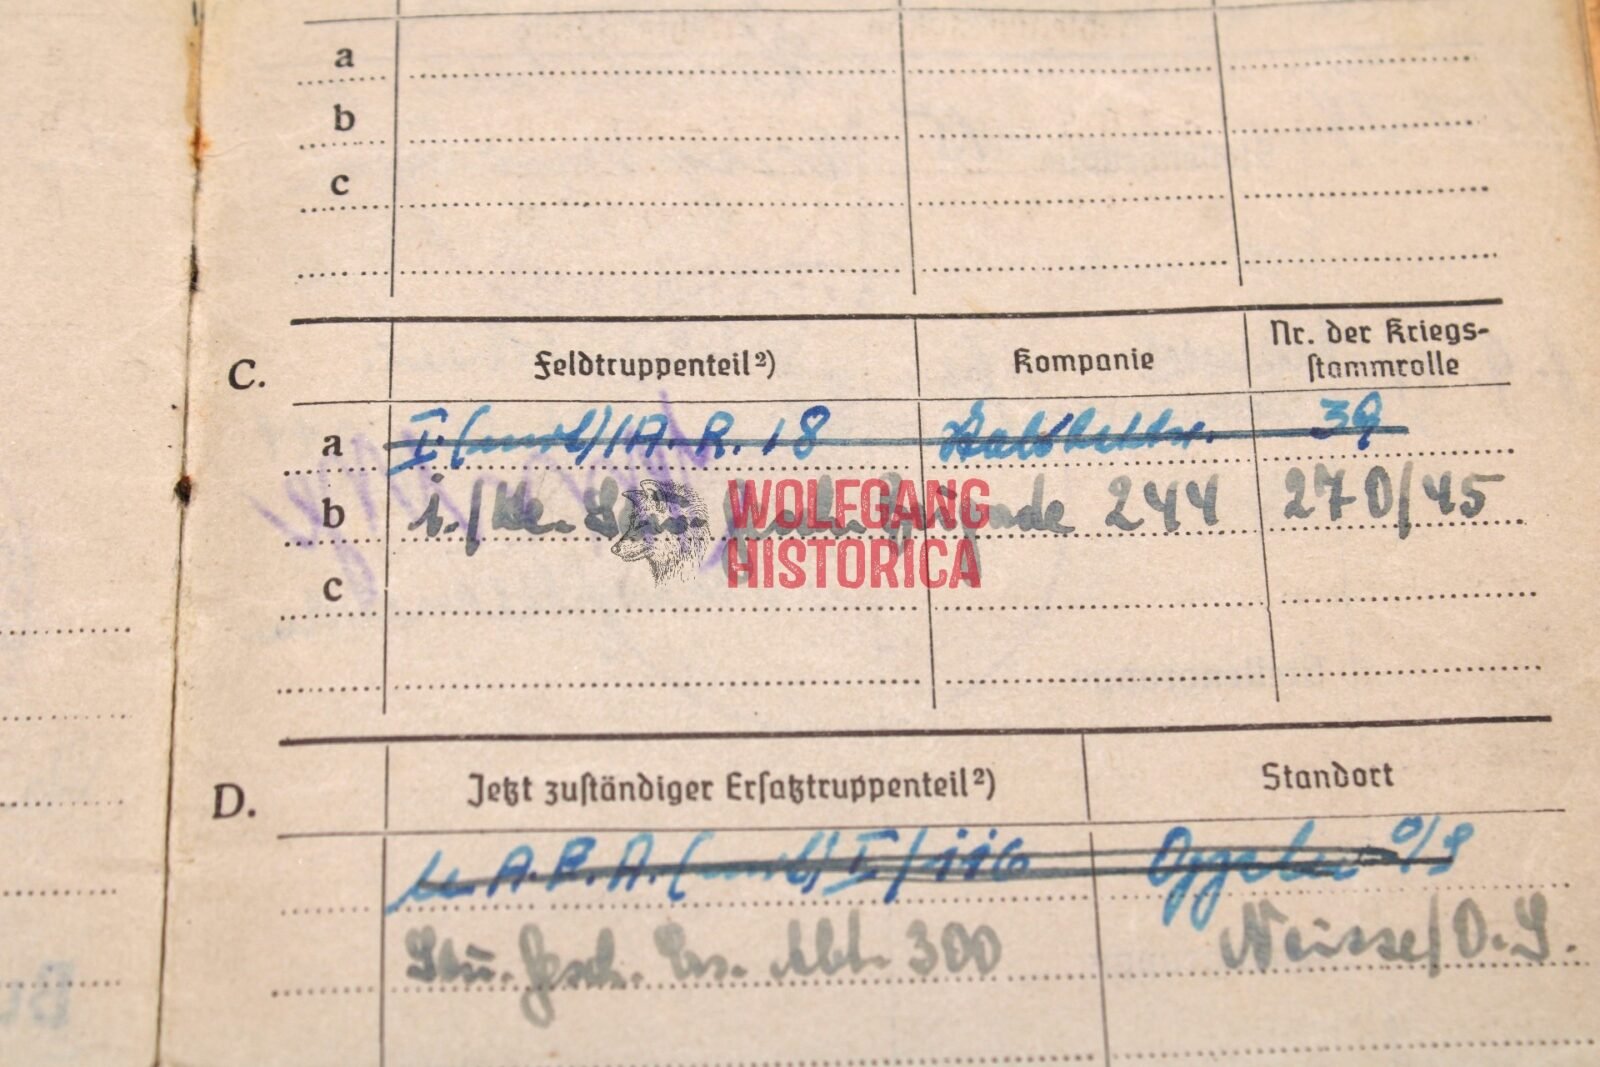 a
b
c
C. Feldtruppenteil²) Kompanie Nr. der Kriegs-
stammrolle
a I. (mot)/A. R. 18 Stabsbattr. 39
b 244 270/45
WOLFGANG
HISTORICA
c
D. Jetzt zuständiger Ersatztruppenteil²) Standort
A. E. A. (mot) I/116 Oppeln O/S
Stu. Gesch. Ers. Abt. 300 Neisse/O.S.